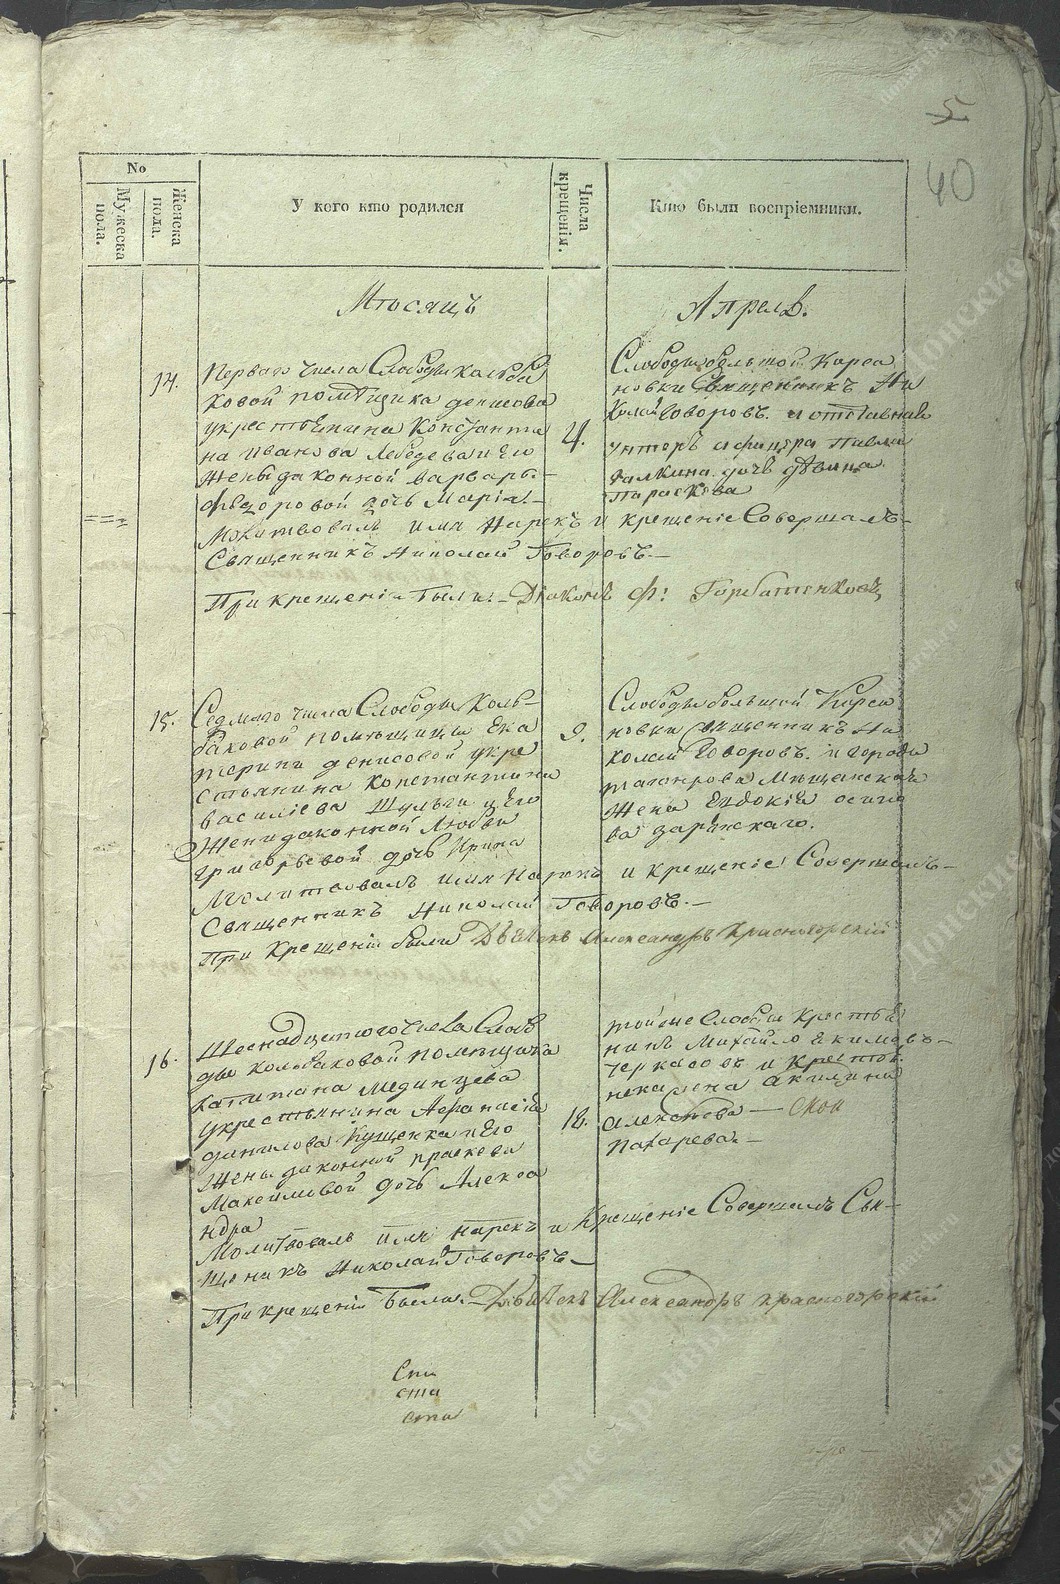 5.
40
No
Мужеска пола.
Женска пола.
У кого кто родился
Числа крещенія.
Кто были воспріемники.
Мѣсяцъ
Апрель.
14.
Первого числа Слободы Кольба
ковой помѣщика денисова
укрестьянина Константи
на иванова лебедева и его
жены законной варвары
федоровой дочь Марія.
4.
Слободы большой Кирса
новки Священникъ Ни
колай Говоровъ. и отставнаго
унтеръ офицера павла
галкина дочь дѣвица
параскева
Молитвовалъ имя Нарекъ и крещеніе Совершалъ
Священникъ Николай Говоровъ.
При крещеніи были: Дьяконъ Ф: Горбатенковъ
15.
Седмаго числа Слободы Коль
баковой помѣщицы Ека
терины денисовой укре
стьянина Константина
василіева Шульги и Его
Жены законной Любви
григорьевой дочь Ирина
9.
Слободы большой Кирса
новки священникъ Ни
колай Говоровъ. и города
таганрога Мѣщанская
Жена Евдокія осипо
ва зарѣнскаго.
Молитвовалъ имя Нарекъ и крещеніе Совершалъ
Священникъ Николай Говоровъ.
При Крещеніи были Дьячекъ Александръ Красногорскій
16.
Шеснадцетого числа Слобо
ды Кольбаковой помѣщика
капитана Мединцева
укрестьянина Афанасія
данилова Кущенка и Его
Жены законной праскеви
Максимовой дочь Алекса
ндра
18.
той же Слободы Крестья
нинъ Михайло Екимовъ
черкасовъ и крестья
нска жена акилина
алексѣева
пахарева.
Молитвовалъ имя нарекъ и Крещеніе Совершалъ Свя
щеникъ Николай Говоровъ
При крещеніи были Дьячекъ Александръ красногорскій
Донские Архивы